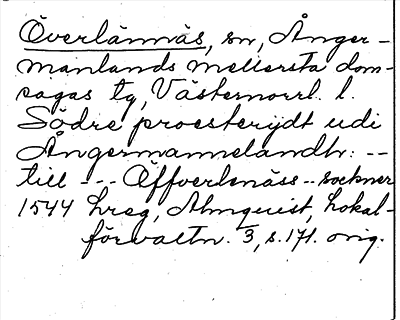 Överlännäs, sn, Ånger-
manlands mellersta dom-
sagas tg, Västernorrl. l.
Södre proesterijdt udi
Ångermannelandh: --
till --- Öffverlenäss -- sockner
1544 hreg, Almquist, Lokal-
förvaltn. 3, s. 171. orig.